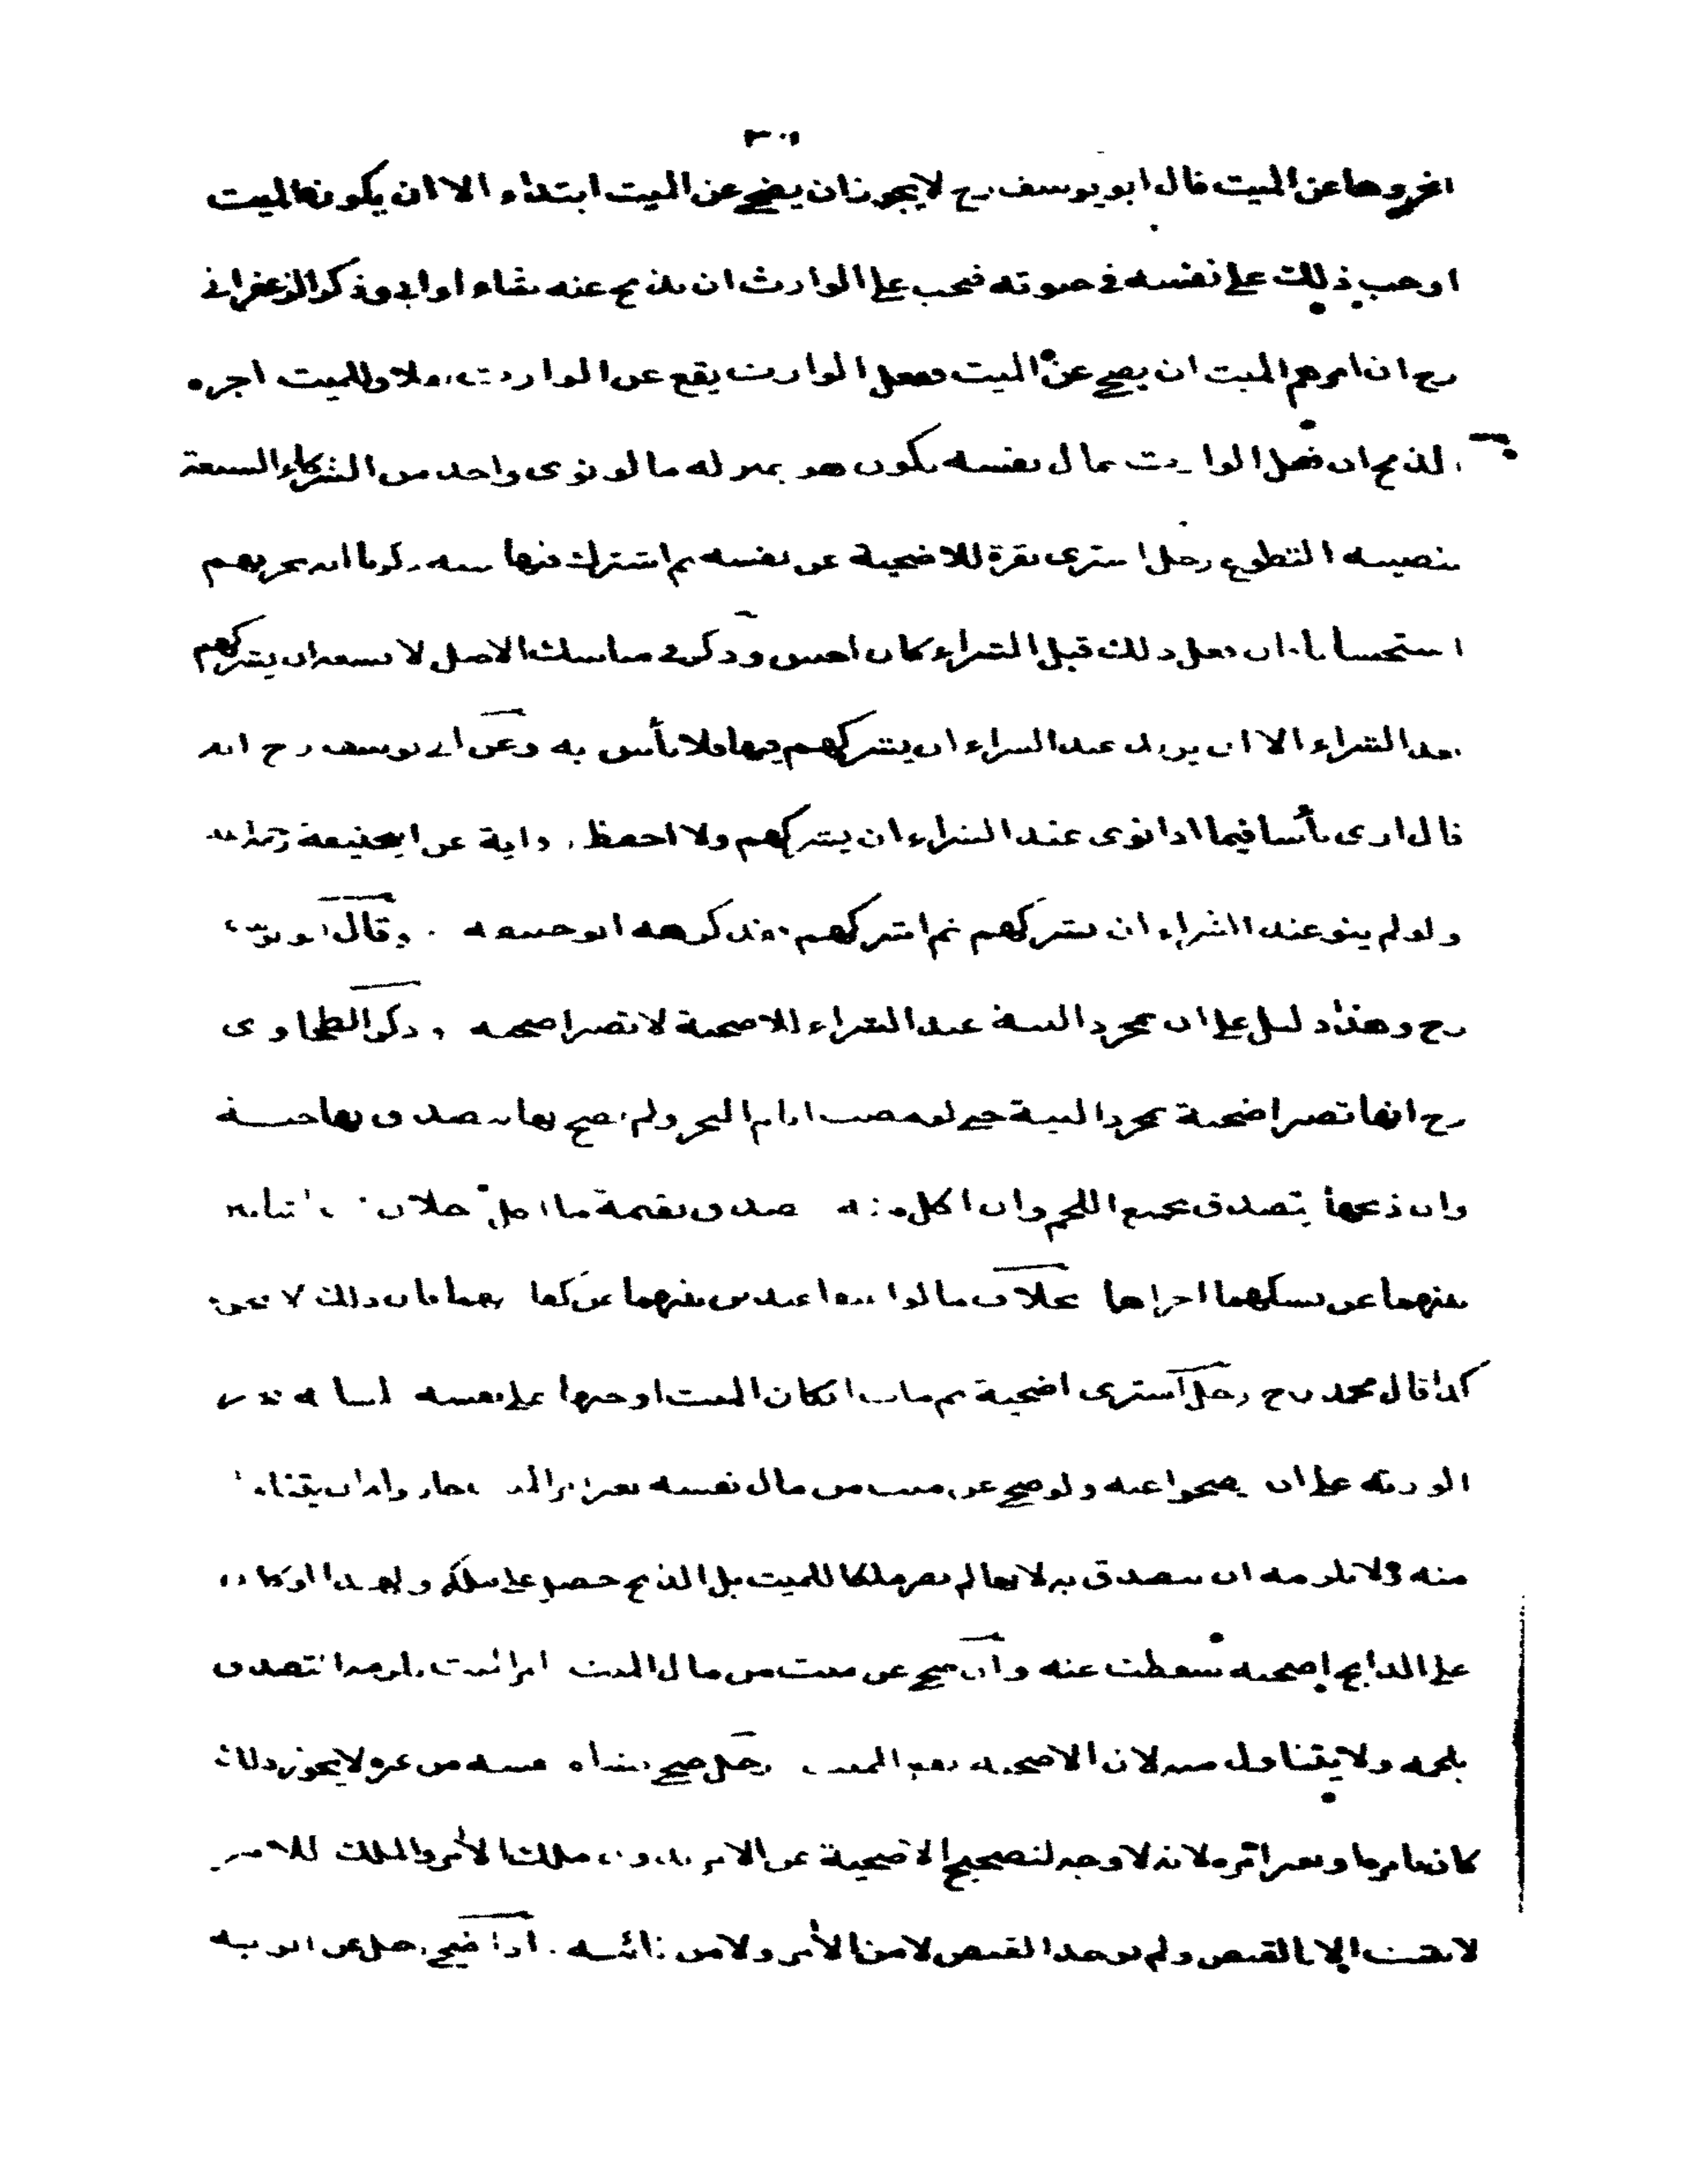 ٣٠١
انحروها عن الميت قال ابو يوسف رح لا يجوز ان يضحى عن الميت ابتداء الا ان يكون الميت
اوجب ذلك على نفسه في حيوته فيجب على الوارث ان يذبح عنه شاء او ابى وذكر الزعفرانى
رح ان امرهم الميت ان يضحى عن الميت ففعل الوارث يقع عن الوارث وللميت اجره
الذبح ان فعل الوارث بمال نفسه يكون هو بمنزلة ما لو نوى واحد من الشركاء السبعة
بنصيبه التطوع رجل اشترى بقرة للاضحية عن نفسه ثم اشترك فيها ستة ذكرنا انه يجزيهم
استحسانا فان فعل ذلك قبل الشراء كان احسن وذكر في مناسك الاصل لا يسعه ان يشركهم
بعد الشراء الا ان يريد عند الشراء ان يشركهم فيها فلا بأس به وعن ابى يوسف رح انه
قال ارى بأسا فيما اذا نوى عند الشراء ان يشركهم ولا احفظ رواية عن ابيحنيفة رحمه الله
ولو لم ينو عند الشراء ان يشركهم ثم اشركهم فقد كرهه ابو حنيفة وقال ابو يوسف
رح وهذا دليل على ان بمجرد النية عند الشراء للاضحية لا تصير اضحية وذكر الطحاوى
رح انها تصير اضحية بمجرد النية حتى لو مضت ايام النحر ولم يضح بها يتصدق بها حية
وان ذبحها يتصدق بجميع اللحم وان اكل منه تصدق بقيمة ما اكل رجلان
عنهما عن نسكهما اجزاهما بخلاف ما لو اعتقا عبدين بينهما عن كفارتهما فان ذلك لا يجوز
كذا قال محمد رح رجل اشترى اضحية ثم مات ان كان الميت اوجبها على نفسه
الورثة على ان يضحوا عنه ولو ضحى عن ميت من مال نفسه بغير امر الميت جاز وله ان يتناول
منه ولا يلزمه ان يتصدق به لانها لم تصر ملكا للميت بل الذبح حصل على ملكه ولهذا لو كان
على الذابح اضحية سقطت عنه وان ضحى عن ميت من مال الميت بامر الميت يلزمه التصدق
بلحمه ولا يتناول منه لان الاضحية تقع للميت رجل ضحى بشاة نفسه عن غيره لا يجوز ذلك
كان بامره او بغير امره لانه لا وجه لتصحيح الاضحية عن الامر بدون ملك الامر والملك للامر
لا يثبت الا بالقبض ولم يوجد القبض لا من الامر ولا من نائبه اذا ضحى رجل عن ابويه